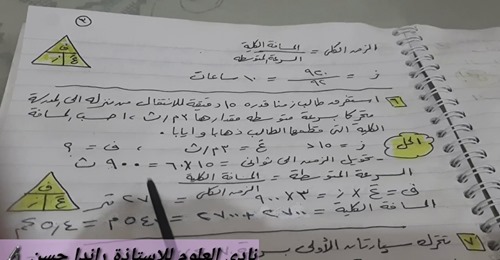 ٧
الزمن الكلي = المسافة الكلية / السرعة المتوسطة
ف
ع ز
ز = ٩٢٠ / ٩٢ = ١٠ ساعات
٦ استغرق طالب زمنا قدره ١٥ دقيقة للانتقال من منزله الى المدرسة
متحركا بسرعة متوسطة مقدارها ٣ م/ث ، احسب المسافة
الكلية التى قطعها الطالب ذهابا و ايابا .
الحل
ز = ١٥ د ع = ٣ م/ث ، ف = ؟
- تحويل الزمن الى ثوانى = ١٥ × ٦٠ = ٩٠٠ ث
السرعة المتوسطة = المسافة الكلية / الزمن الكلى
ف
ع ز
ف = ع × ز = ٣ × ٩٠٠ = ٢٧٠٠ متر
المسافة الكلية = ٢٧٠٠ + ٢٧٠٠ = ٥٤٠٠ م = ٥٫٤ كم
٧ تتحرك سيارتان الأولى بسرعة
نادى العلوم للاستاذة راندا حسن